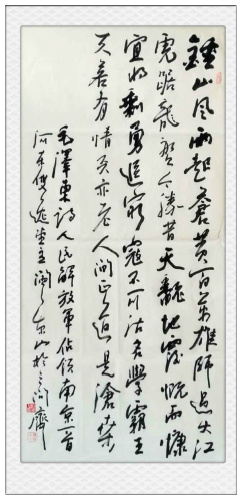 鍾山風雨起蒼黃百万雄師过大江
虎踞龍盤今勝昔天翻地覆慨而慷
宜将剩勇追窮寇不可沽名學霸王
天若有情天亦老人間正道是滄桑
毛澤東詩人民解放軍佔領南京一首
河東堂主山於三间齋